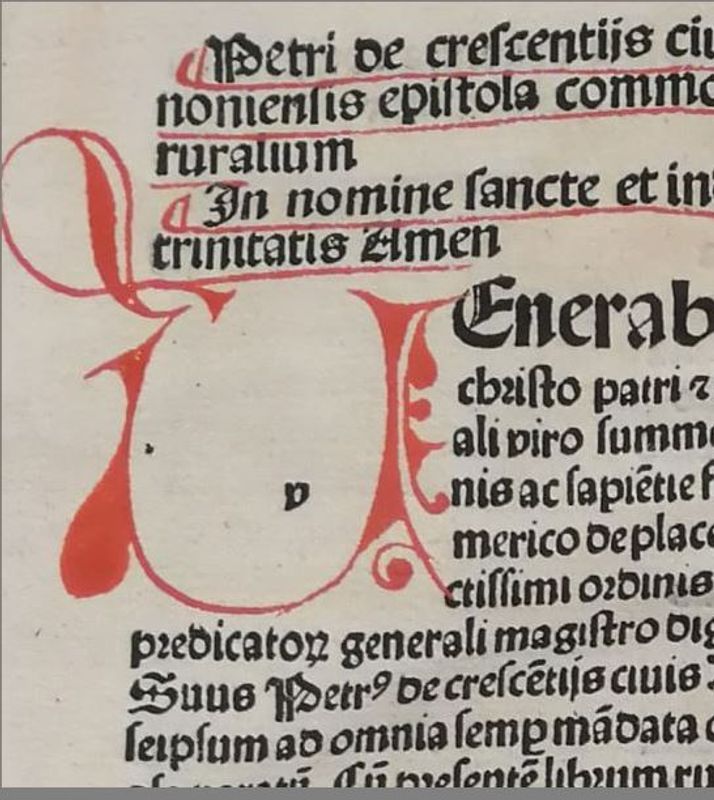 Petri de creſcentijs ciu
nonienſis epiſtola commo
ruralium
In nomine ſancte et in
trinitatis Amen
v
Enerab
chꝛiſto patri ⁊
ali viro ſumm
nis ac ſapiẽtie
merico de place
ctiſſimi oꝛdinis
pꝛedicatoꝝ generali magiſtro dig
Suus Petrꝰ de creſcẽtijs ciuis
ſeipſum ad omnia ſemꝑ mãdata
Cũ pꝛeſentẽ libꝛum ru